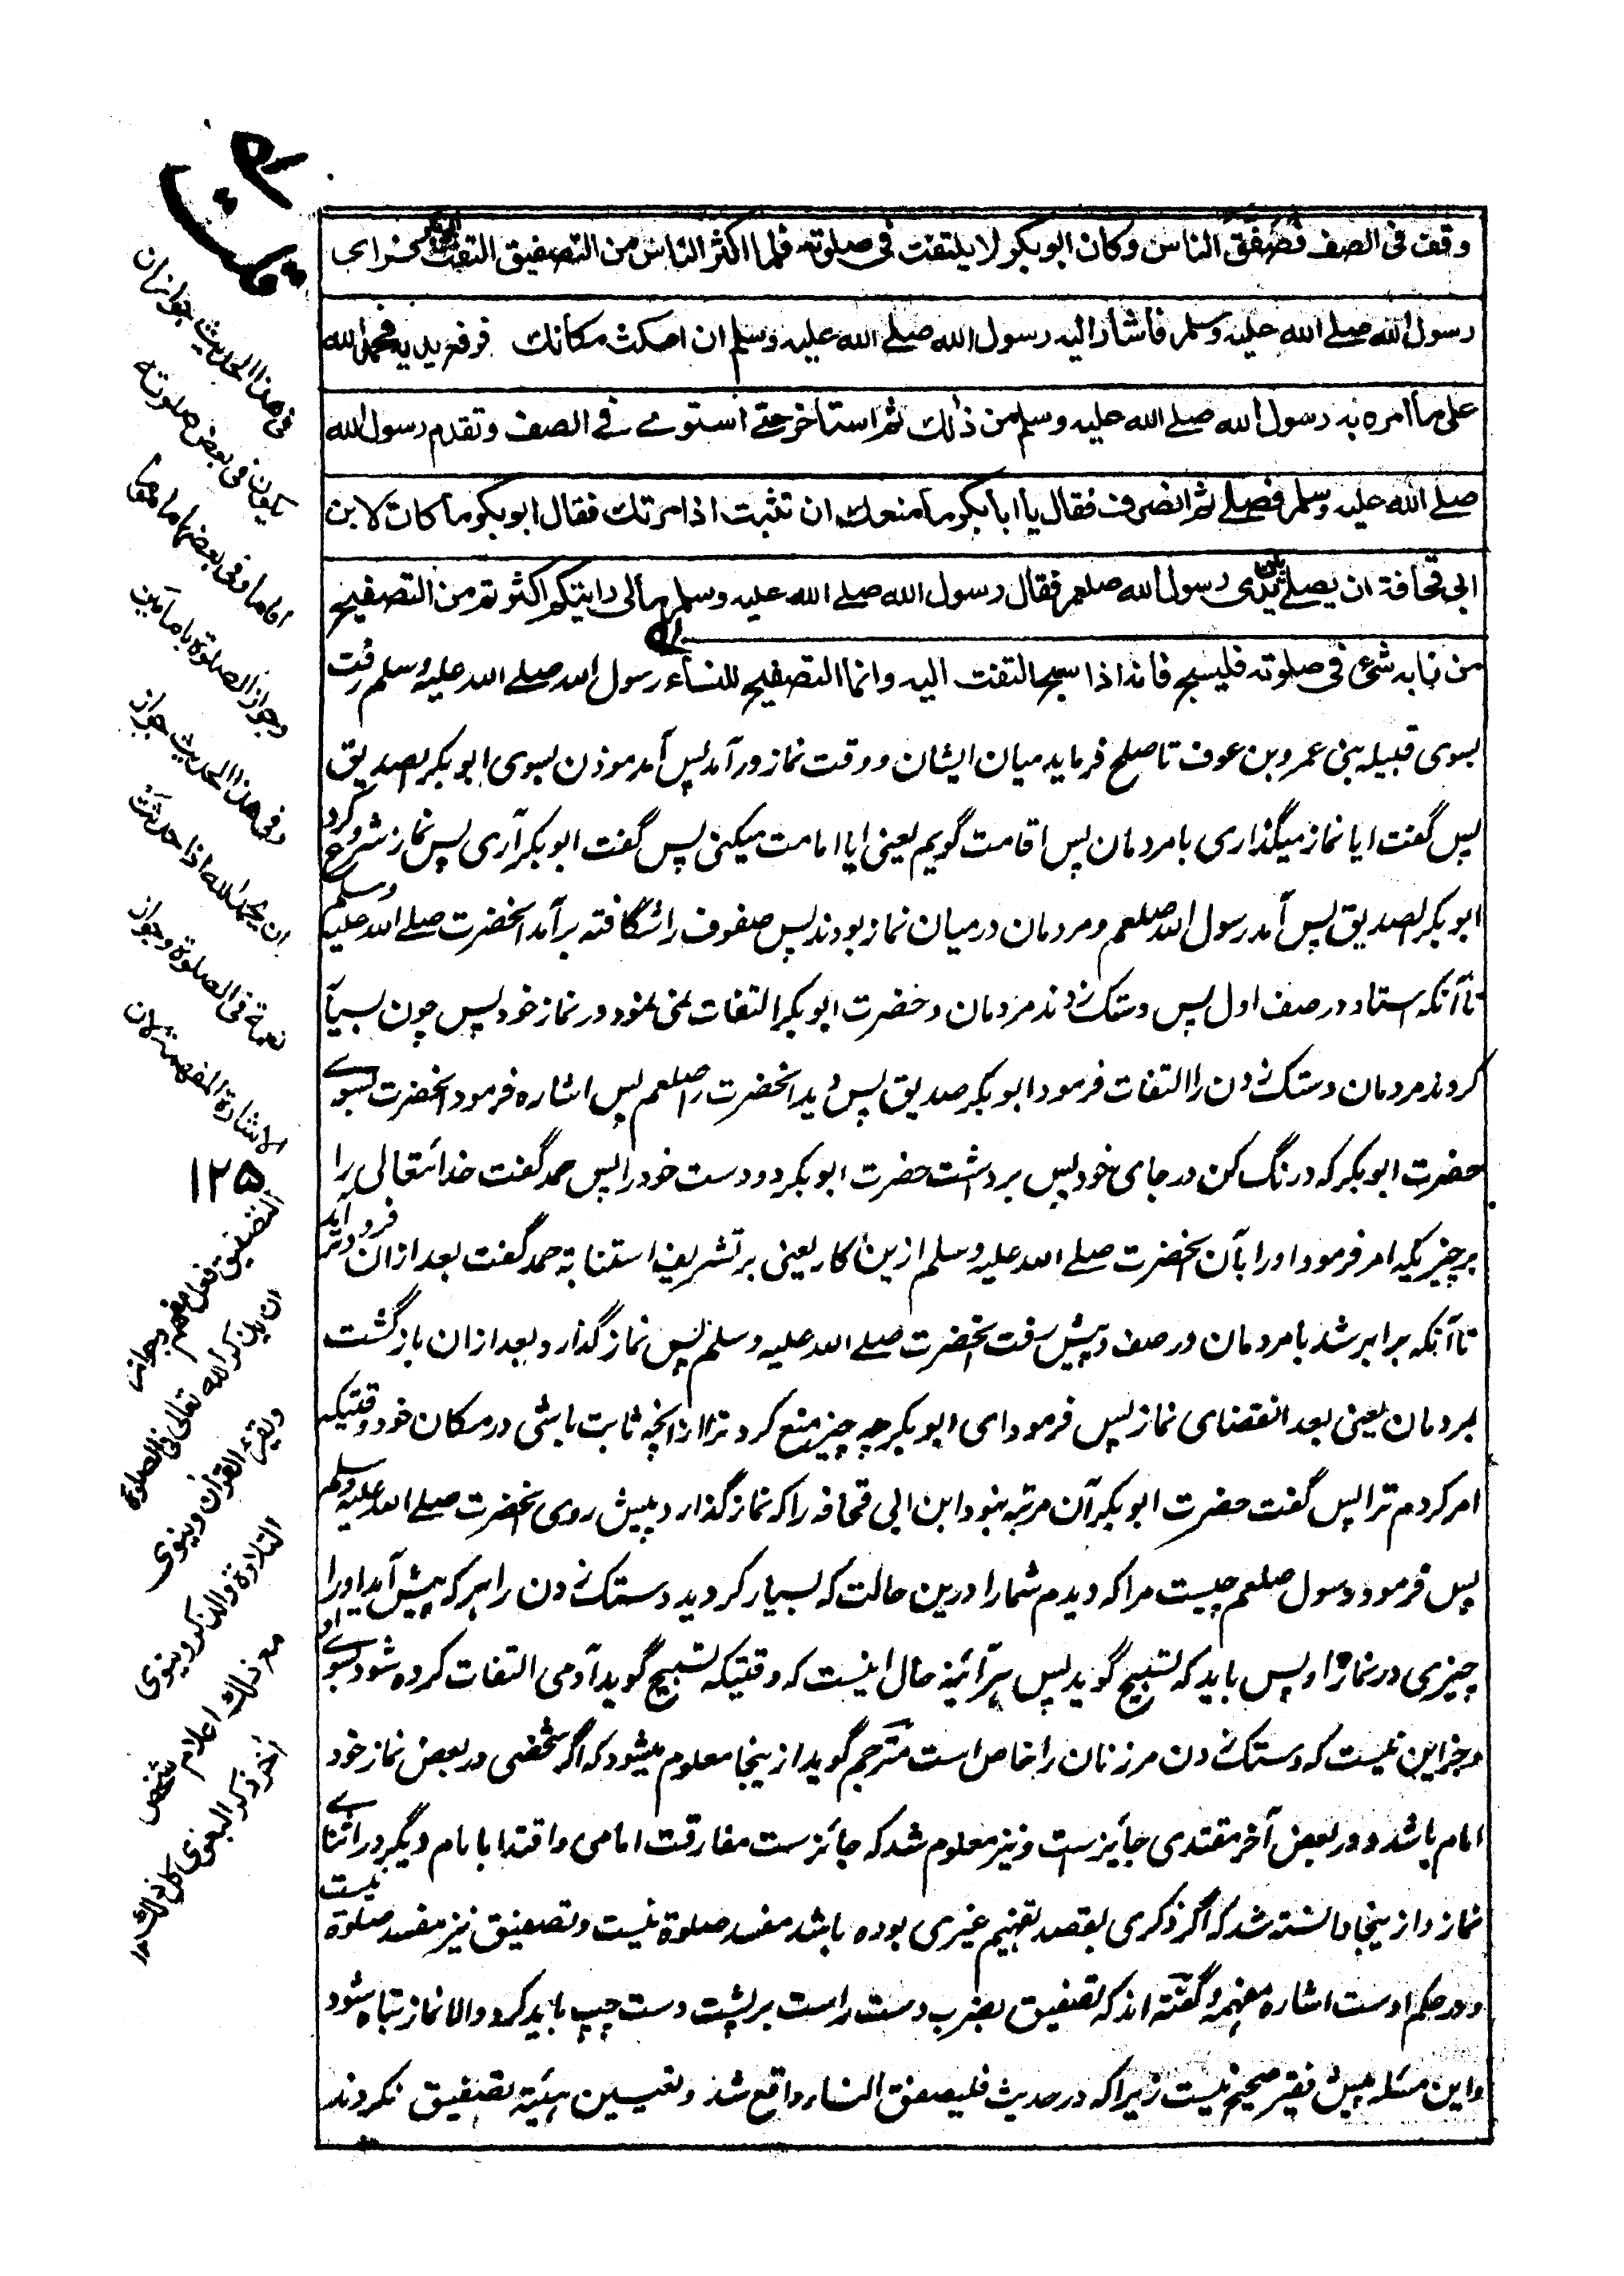 وقف فی الصف فصفق الناس وکان ابوبکر لا یلتفت فی صلوته فلما اکثر الناس من التصفیق التفت ابوبکر فرای
رسول الله صلے الله علیه وسلم فاشار الیه رسول الله صلے الله علیه وسلم ان امکث مکانك فرفع یدیه فحمد الله
علی ما امره به رسول الله صلے الله علیه وسلم من ذٰلك ثم استاخر حتے استوے فے الصف وتقدم رسول الله
صلے الله علیه وسلم فصلے ثم انصرف فقال یا ابا بکر ما منعك ان تثبت اذ امرتك فقال ابو بکر ما کان لابن
ابی قحافة ان یصلے بین یدی رسول الله صلعم فقال رسول الله صلے الله علیه وسلم مالی رایتکم اکثرتم من التصفیح
من نابه شئ فی صلوته فلیسبح فانه اذا سبح التفت الیه وانما التصفیح للنساء رسول الله صلے الله علیه وسلم رفت
بسوی قبیله بنی عمرو بن عوف تا صلح فرماید میان ایشان و وقت نماز درآمد پس آمد موذن بسوی ابوبکر الصدیق
پس گفت ایا نماز میگذاری با مردمان پس اقامت گویم یعنی ایا امامت میکنی پس گفت ابو بکر آری پس نماز شروع کرد
ابو بکر الصدیق پس آمد رسول الله صلعم و مردمان در میان نماز بودند پس صفوف را شگافته برآمد آنحضرت صلے الله علیه وسلم
تا آنکه استاد در صف اول پس دستک زدند مردمان و حضرت ابو بکر التفات نمی نمود در نماز خود پس چون بسیا
کردند مردمان دستک زدن را التفات فرمود ابو بکر صدیق پس دید آنحضرت را صلعم پس اشاره فرمود آنحضرت بسوے
حضرت ابو بکر که درنگ کن در جای خود پس برداشت حضرت ابو بکر دو دست خود را پس حمد گفت خدائتعالی را
بر چیزیکه امر فرمود او را بآن آنحضرت صلے الله علیه وسلم ازین کار یعنی بر تشریف استنابة حمد گفت بعد ازان فروتر آمد
تا آنکه برابر شد با مردمان در صف و پیش رفت آنحضرت صلے الله علیه وسلم پس نماز گذارد و بعد ازان بازگشت
بمردمان یعنی بعد انقضای نماز پس فرمود ای ابو بکر چه چیز منع کرد ترا ازآنچه ثابت باشی در مکان خود وقتیکه
امر کردم ترا پس گفت حضرت ابو بکر آن مرتبه نبود ابن ابی قحافه را که نماز گذارد پیش روی آنحضرت صلے الله علیه وسلم
پس فرمود رسول صلعم چیست مرا که دیدم شما را درین حالت که بسیار کردید دستک زدن را هر که پیش آید او را
چیزی در نماز او پس باید که تسبیح گوید پس هر آئینه حال اینست که وقتیکه تسبیح گوید آدمی التفات کرده شود بسوے او
و جز این نیست که دستک زدن مر زنان را خاص است مترجم گوید ازینجا معلوم میشود که اگر شخصی در بعض نماز خود
امام باشد و در بعض آخر مقتدی جایزست و نیز معلوم شد که جائزست مفارقت امامی و اقتدا بامام دیگر در اثناے
نماز و ازینجا دانسته شد که اگر ذکری بقصد تفهیم غیری بوده باشد مفسد صلوة نیست و تصفیق نیز مفسد صلوة نیست
و در حکم اوست اشاره مفهمه و گفته اند که تصفیق بضرب دست راست بر پشت دست چپ باید کرد و الا نماز تباه شود
و این مسئله پیش فقیر صحیح نیست زیرا که در حدیث فلیصفق النساء واقع شد و تعیین هیئة تصفیق نکردند
فی هذا الحدیث جواز ان
یکون فی بعض صلوته
اماما وفی بعضها ماموما
وجواز الصلوة بامامین
وفی هذا الحدیث جواز
ان یحمد الله اذا حدثت
نعمة فی الصلوة وجواز
الاشارة المفهمة لان
۱۲۵
التصفیق فعل مفهم وجواز
ان یذکر الله تعالی فی الصلوة
ویقرء القرآن وینوی
التلاوة والذکر وینوی
مع ذلك اعلام شخص
آخر ذکر البغوی کل ذلك ۱۲